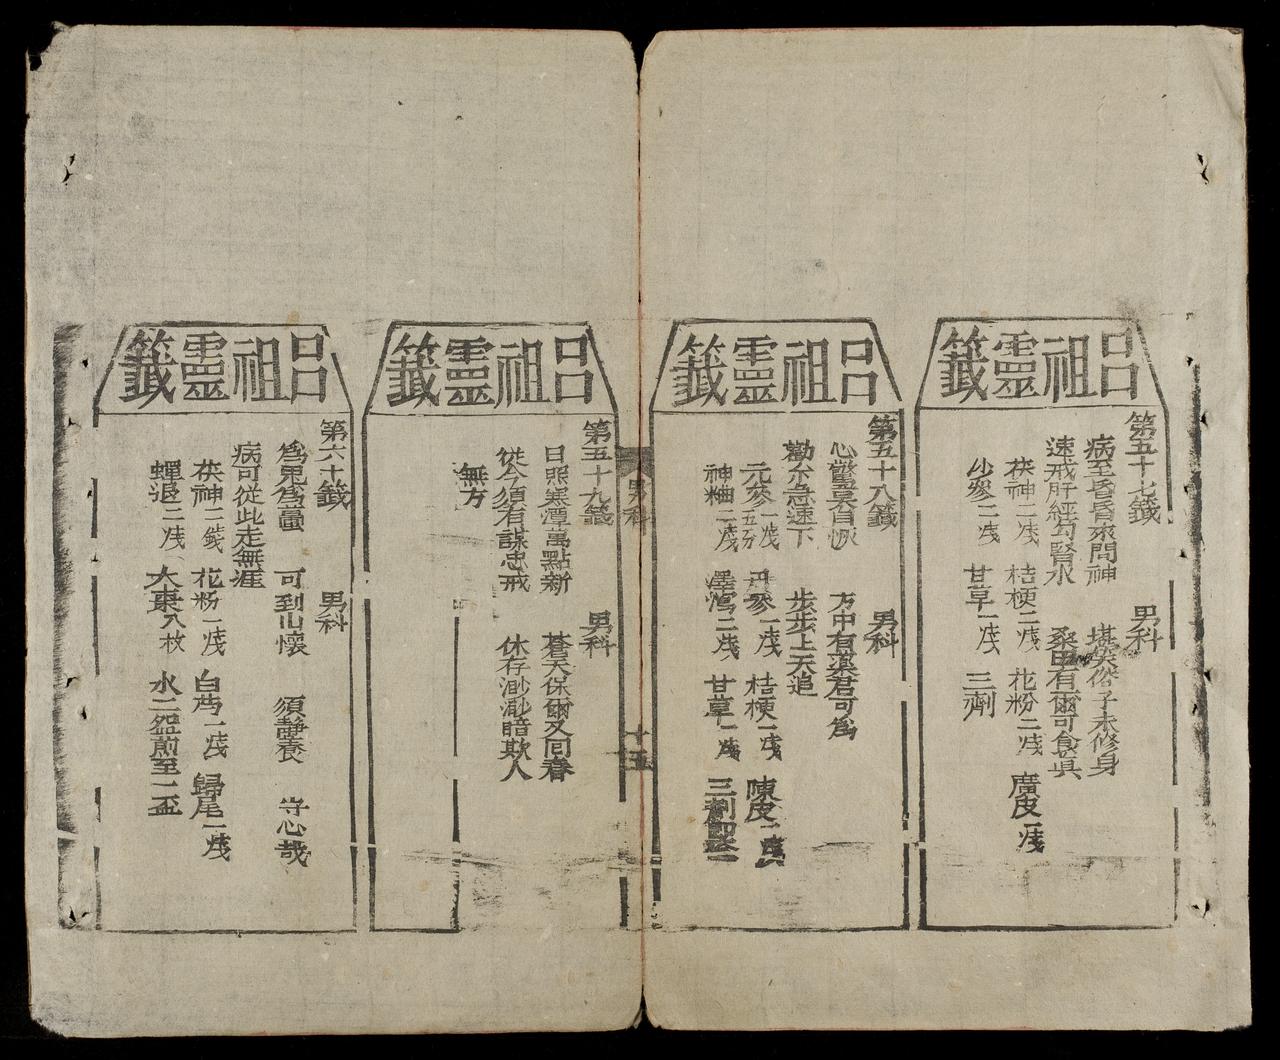 呂祖靈籤
第五十七籤 男科
病至昏昏來問神 堪笑俗子未修身
速戒肝經勾腎水 桑田有爾可食眞
茯神二戔 桔梗二戔 花粉二戔 廣皮一戔
沙參二戔 甘草一戔 三劑
呂祖靈籤
第五十八籤 男科
心鬱莫自恢 方中有藥君可為
勸尔急速下 步步上天追
元參一戔五分 丹參一戔 桔梗一戔 陳皮一戔
神粬二戔 澤瀉二戔 甘草一戔 三劑
男科
十五
呂祖靈籤
第五十九籤 男科
日照寒潭萬點新 蒼天保爾又回春
從今須有謀忠戒 休存渺渺暗欺人
無方
呂祖靈籤
第六十籤 男科
為鬼為 可到山懷 須靜養 守心哉
病可從此走無涯
茯神二戔 花粉一戔 白芍一戔 歸尾一戔
蟬退二戔 大棗八枚 水二盌煎至一盃